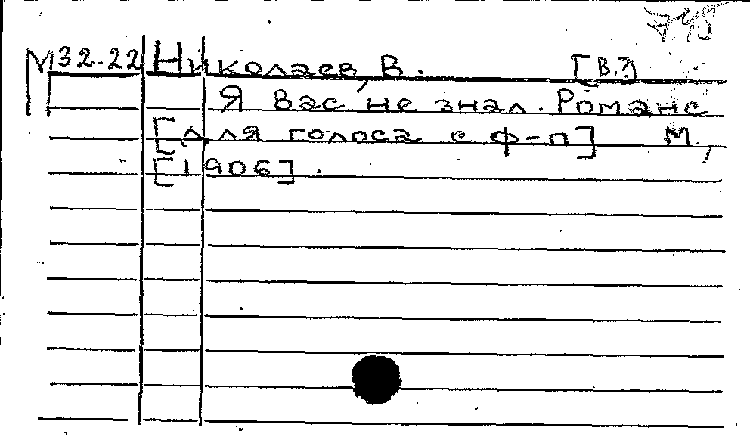 М32-22 Николаев, В. [В.?]
Я вас не знал. Романс
[для голоса с ф-п] М.,
[1906].